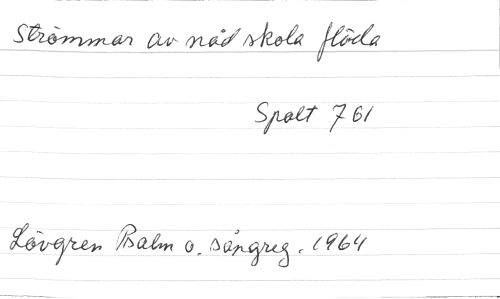 Strömmar av nåd skola flöda
Spalt 761
Lövgren Psalm o. sångreg. 1964